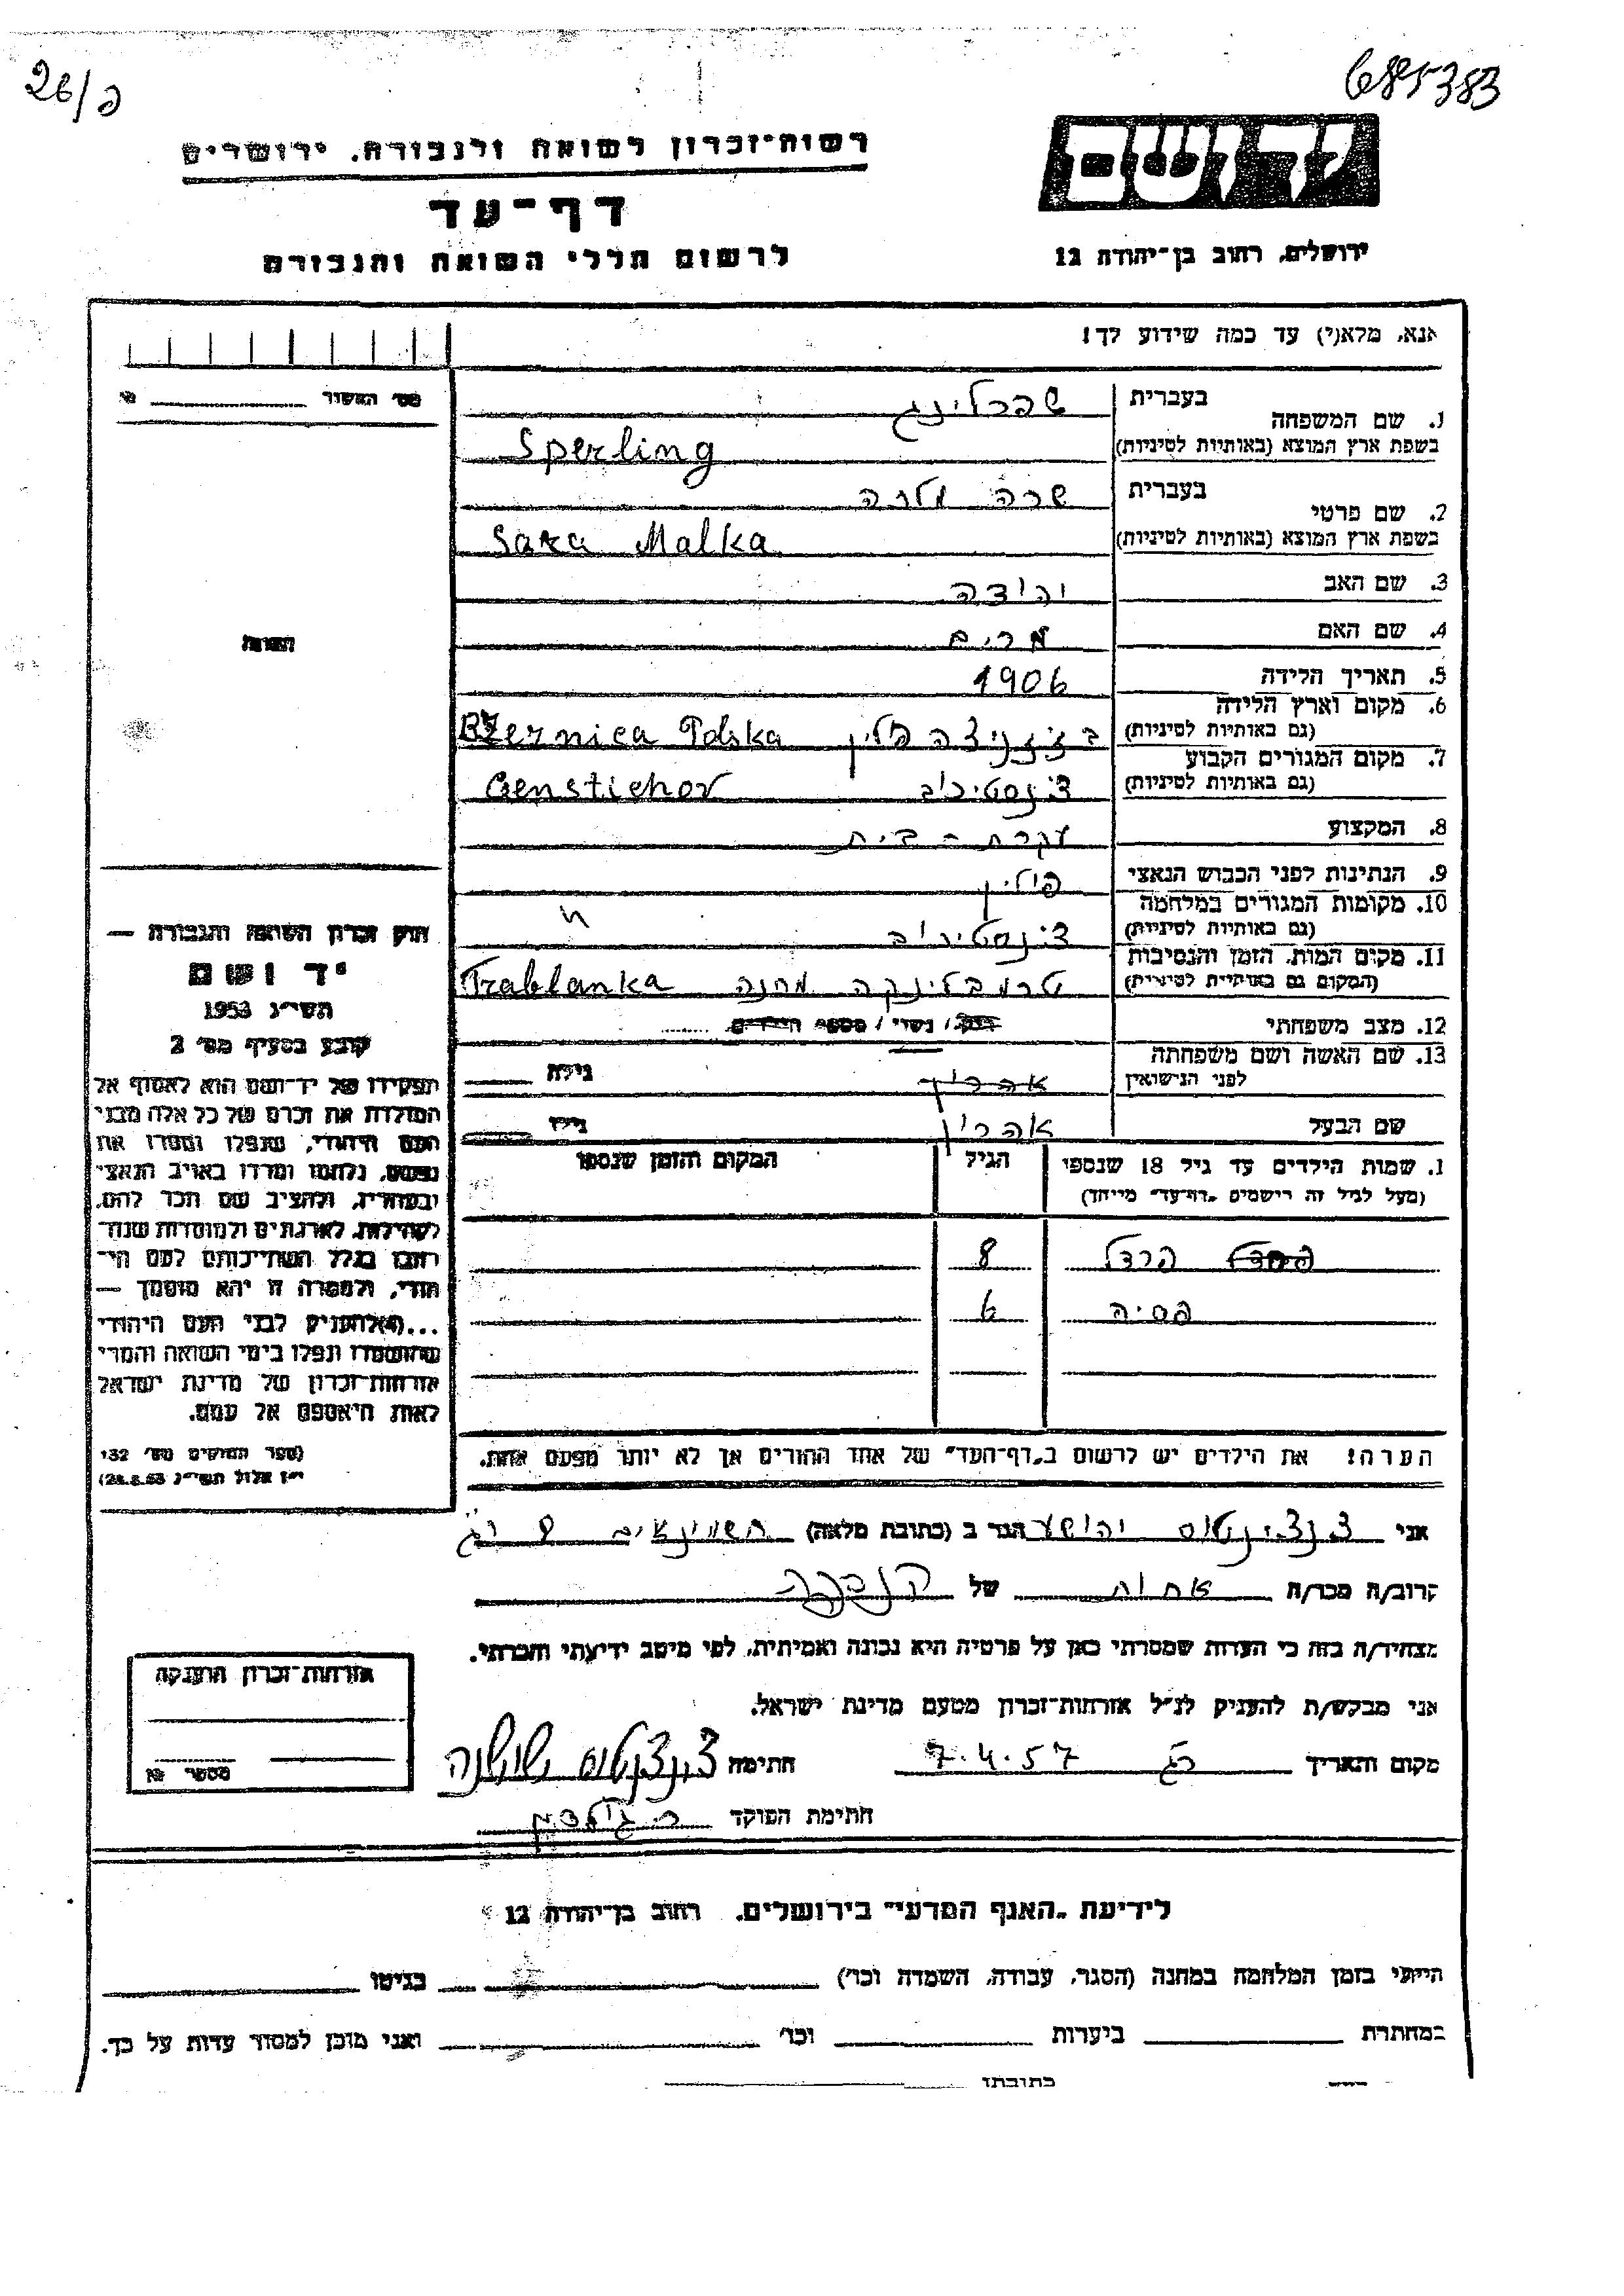 26/פ
685383
רשות-זכרון לשואה ולגבורה. ירושלים
דף-עד
לרשום חללי השואה והגבורה
יד ושם
ירושלים, רחוב בן-יהודה 12
אנא, מלא(י) עד כמה שידוע לך!
1. שם המשפחה
בעברית שפרלינג
בשפת ארץ המוצא (באותיות לטיניות) Sperling
2. שם פרטי
בעברית שרה מלכה
בשפת ארץ המוצא (באותיות לטיניות) Sara Malka
3. שם האב יהודה
4. שם האם מרים
5. תאריך הלידה 1906
6. מקום וארץ הלידה
(גם באותיות לטיניות) פולין Polska
7. מקום המגורים הקבוע
(גם באותיות לטיניות) צ'נסטיכוב Censtichov
8. המקצוע עקרת-בית
9. הנתינות לפני הכבוש הנאצי פולין
10. מקומות המגורים במלחמה
(גם באותיות לטיניות) צ'נסטיכוב "
11. מקום המות, הזמן והנסיבות
(המקום גם באותיות לטיניות) טרמבלינקה מחנה Trablanka
12. מצב משפחתי רוק/ נשוי / מספר הילדים
13. שם האשה ושם משפחתה
לפני הנישואין אהרון גילה
שם הבעל אהרון גילו
1. שמות הילדים עד גיל 18 שנספו
(מעל לגיל זה רישמים "דף-עד" מייחד)
הגיל
המקום והזמן שנספו
הרדל 8
פסיה 6
הערה! את הילדים יש לרשום ב"דף-העד" של אחד ההורים אך לא יותר מפעם אחת.
מס' האשור מי
הערות
חוק זכרון השואה והגבורה —
יד ושם
תשי"ג 1953
קובע בסעיף מס' 2
תפקידו של יד-ושם הוא לאסוף אל
המולדת את זכרם של כל אלה מבני
העם היהודי, שנפלו ומסרו את
נפשם, נלחמו ומרדו באויב הנאצי
ובעוזריו, ולהציב שם וזכר להם,
לקהילות, לארגונים ולמוסדות שנח־
רבו בגלל השתייכותם לעם הי־
הודי, ולמטרה זו יהא מוסמך —
...(4)להעניק לבני העם היהודי
שהושמדו ונפלו בימי השואה והמרי
אזרחות-זכרון של מדינת ישראל
לאות היאספם אל עמם.
(ספר החוקים מס' 132
י"ז אלול תשי"ג 28.8.53)
אני הגר ב (כתובת מלאה) חשמונאים 8 רג
קרוב/ה מכר/ה אחות של
מצהיר/ה בזה כי העדות שמסרתי כאן על פרטיה היא נכונה ואמיתית, לפי מיטב ידיעתי והכרתי.
אני מבקש/ת להעניק לנ"ל אזרחות-זכרון מטעם מדינת ישראל.
מקום ותאריך רג 7.4.57 חתימה שושנה
חתימת הפוקד
אזרחות-זכרון הוענקה
מספר מס
לידיעת "האגף המדעי" בירושלים. רחוב בן-יהודה 12
הייתי בזמן המלחמה במחנה (הסגר, עבודה, השמדה וכו') בגיטו
במחתרת ביערות וכו' ואני מוכן למסור עדות על כך.
כתובתו